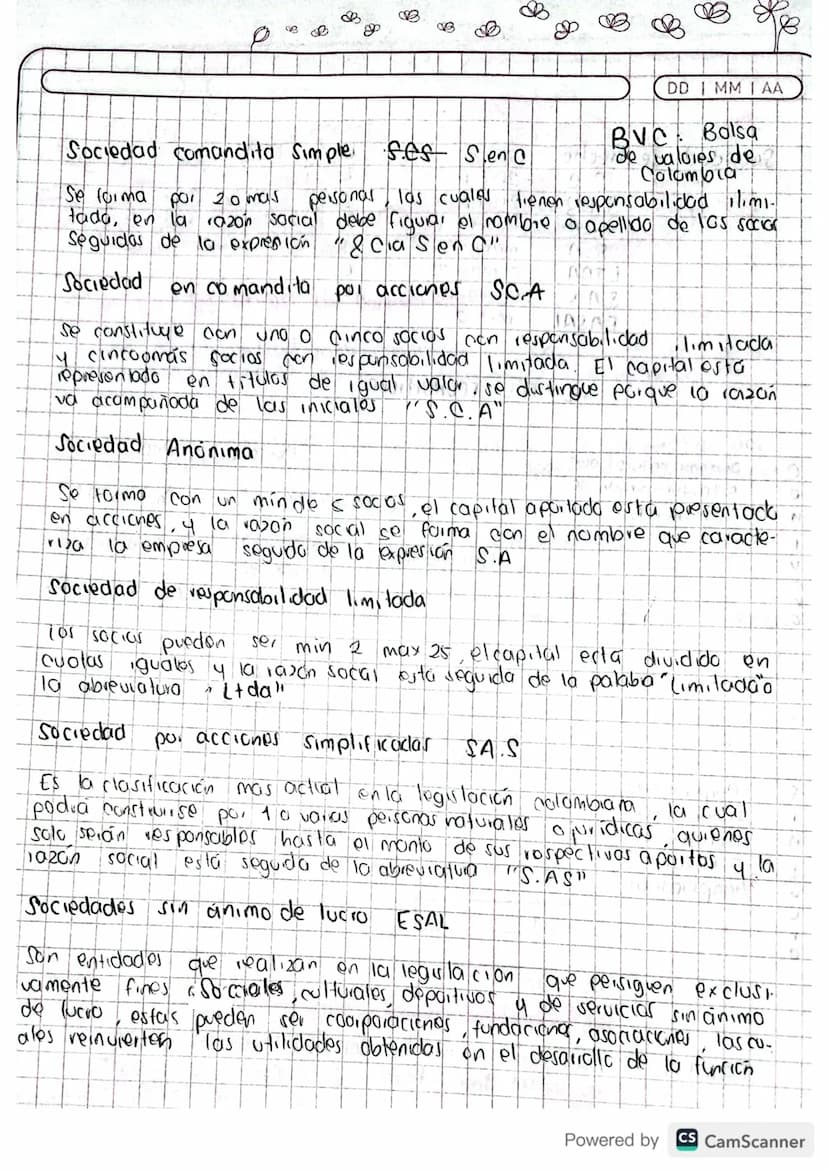 DD | MM | AA
BVC: Bolsa
de valores de
Colombia
Sociedad comandita simple S.C.S S.enC
Se forma por 2 o mas personas, las cuales tienen responsabilidad ilimi-
tado, en la razón social debe figurar el nombre o apellido de los socios
seguidos de la expresión "& Cia S en C"
Sociedad en comandita por acciones SC.A
se constituye con uno o cinco socios con responsabilidad ilimitada
y cinco o más socios con responsabilidad limitada. El capital está
representado en títulos de igual valor, se distingue porque la razón
va acompañada de las iniciales "S.C.A"
Sociedad Anónima
Se forma con un min de 5 socios, el capital aportado está presentado
en acciones, y la razón social se forma con el nombre que caracte-
riza la empresa seguido de la expresión S.A
Sociedad de responsabilidad limitada
los socios pueden ser min 2 max 25, el capital está dividido en
cuotas iguales y la razón social está seguida de la palaba "Limitada" o
la abreviatura "Ltda"
Sociedad por acciones simplificadas SA.S
Es la clasificación mas actual en la legislación colombiana, la cual
podrá construirse por 1 o varias personas naturales o juridicas, quienes
solo serán responsables hasta el monto de sus respectivos aportes y la
razón social está seguida de la abreviatura "S.AS"
Sociedades sin ánimo de lucro ESAL
Son entidades que realizan en la legislación que persiguen exclusi-
vamente fines sociales, culturales, deportivos y de servicios sin ánimo
de lucro, estas pueden ser coorporaciones, fundaciones, asociaciones, las cu-
ales reinvierten las utilidades obtenidas en el desarrollo de la función
Powered by CS CamScanner